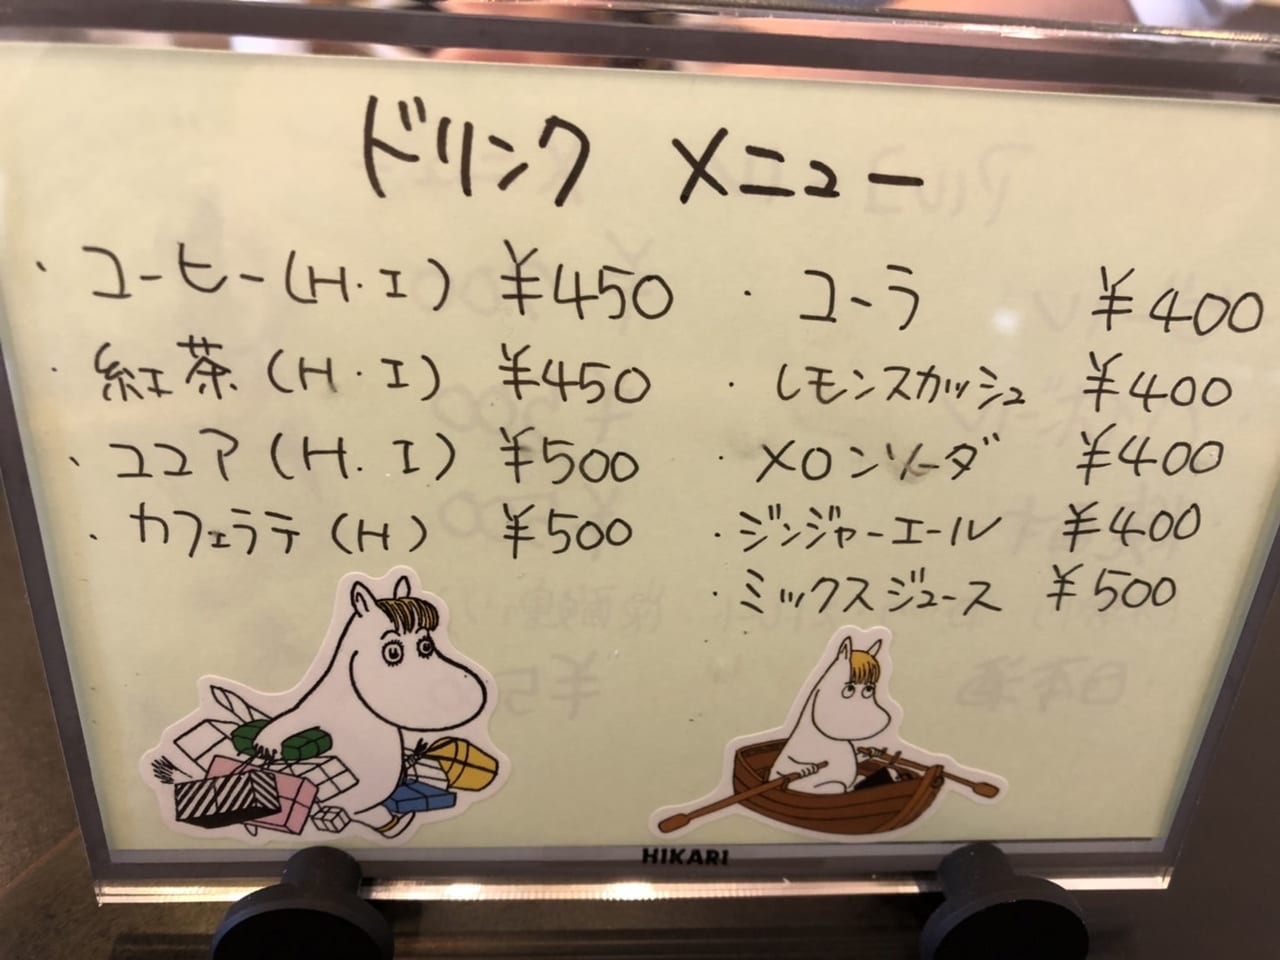 ドリンク メニュー
・コーヒー(H・I) ¥450
・紅茶(H・I) ¥450
・ココア(H.I) ¥500
・カフェラテ(H) ¥500
・コーラ ¥400
・レモンスカッシュ ¥400
・メロンソーダ ¥400
・ジンジャーエール ¥400
・ミックスジュース ¥500
HIKARI